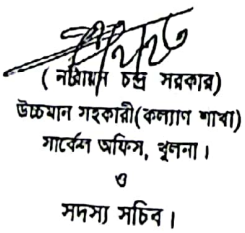 ( নারায়ন চন্দ্র সরকার)
উচ্চমান সহকারী(কল্যাণ শাখা)
সার্কেল অফিস, খুলনা।
ও
সদস্য সচিব।